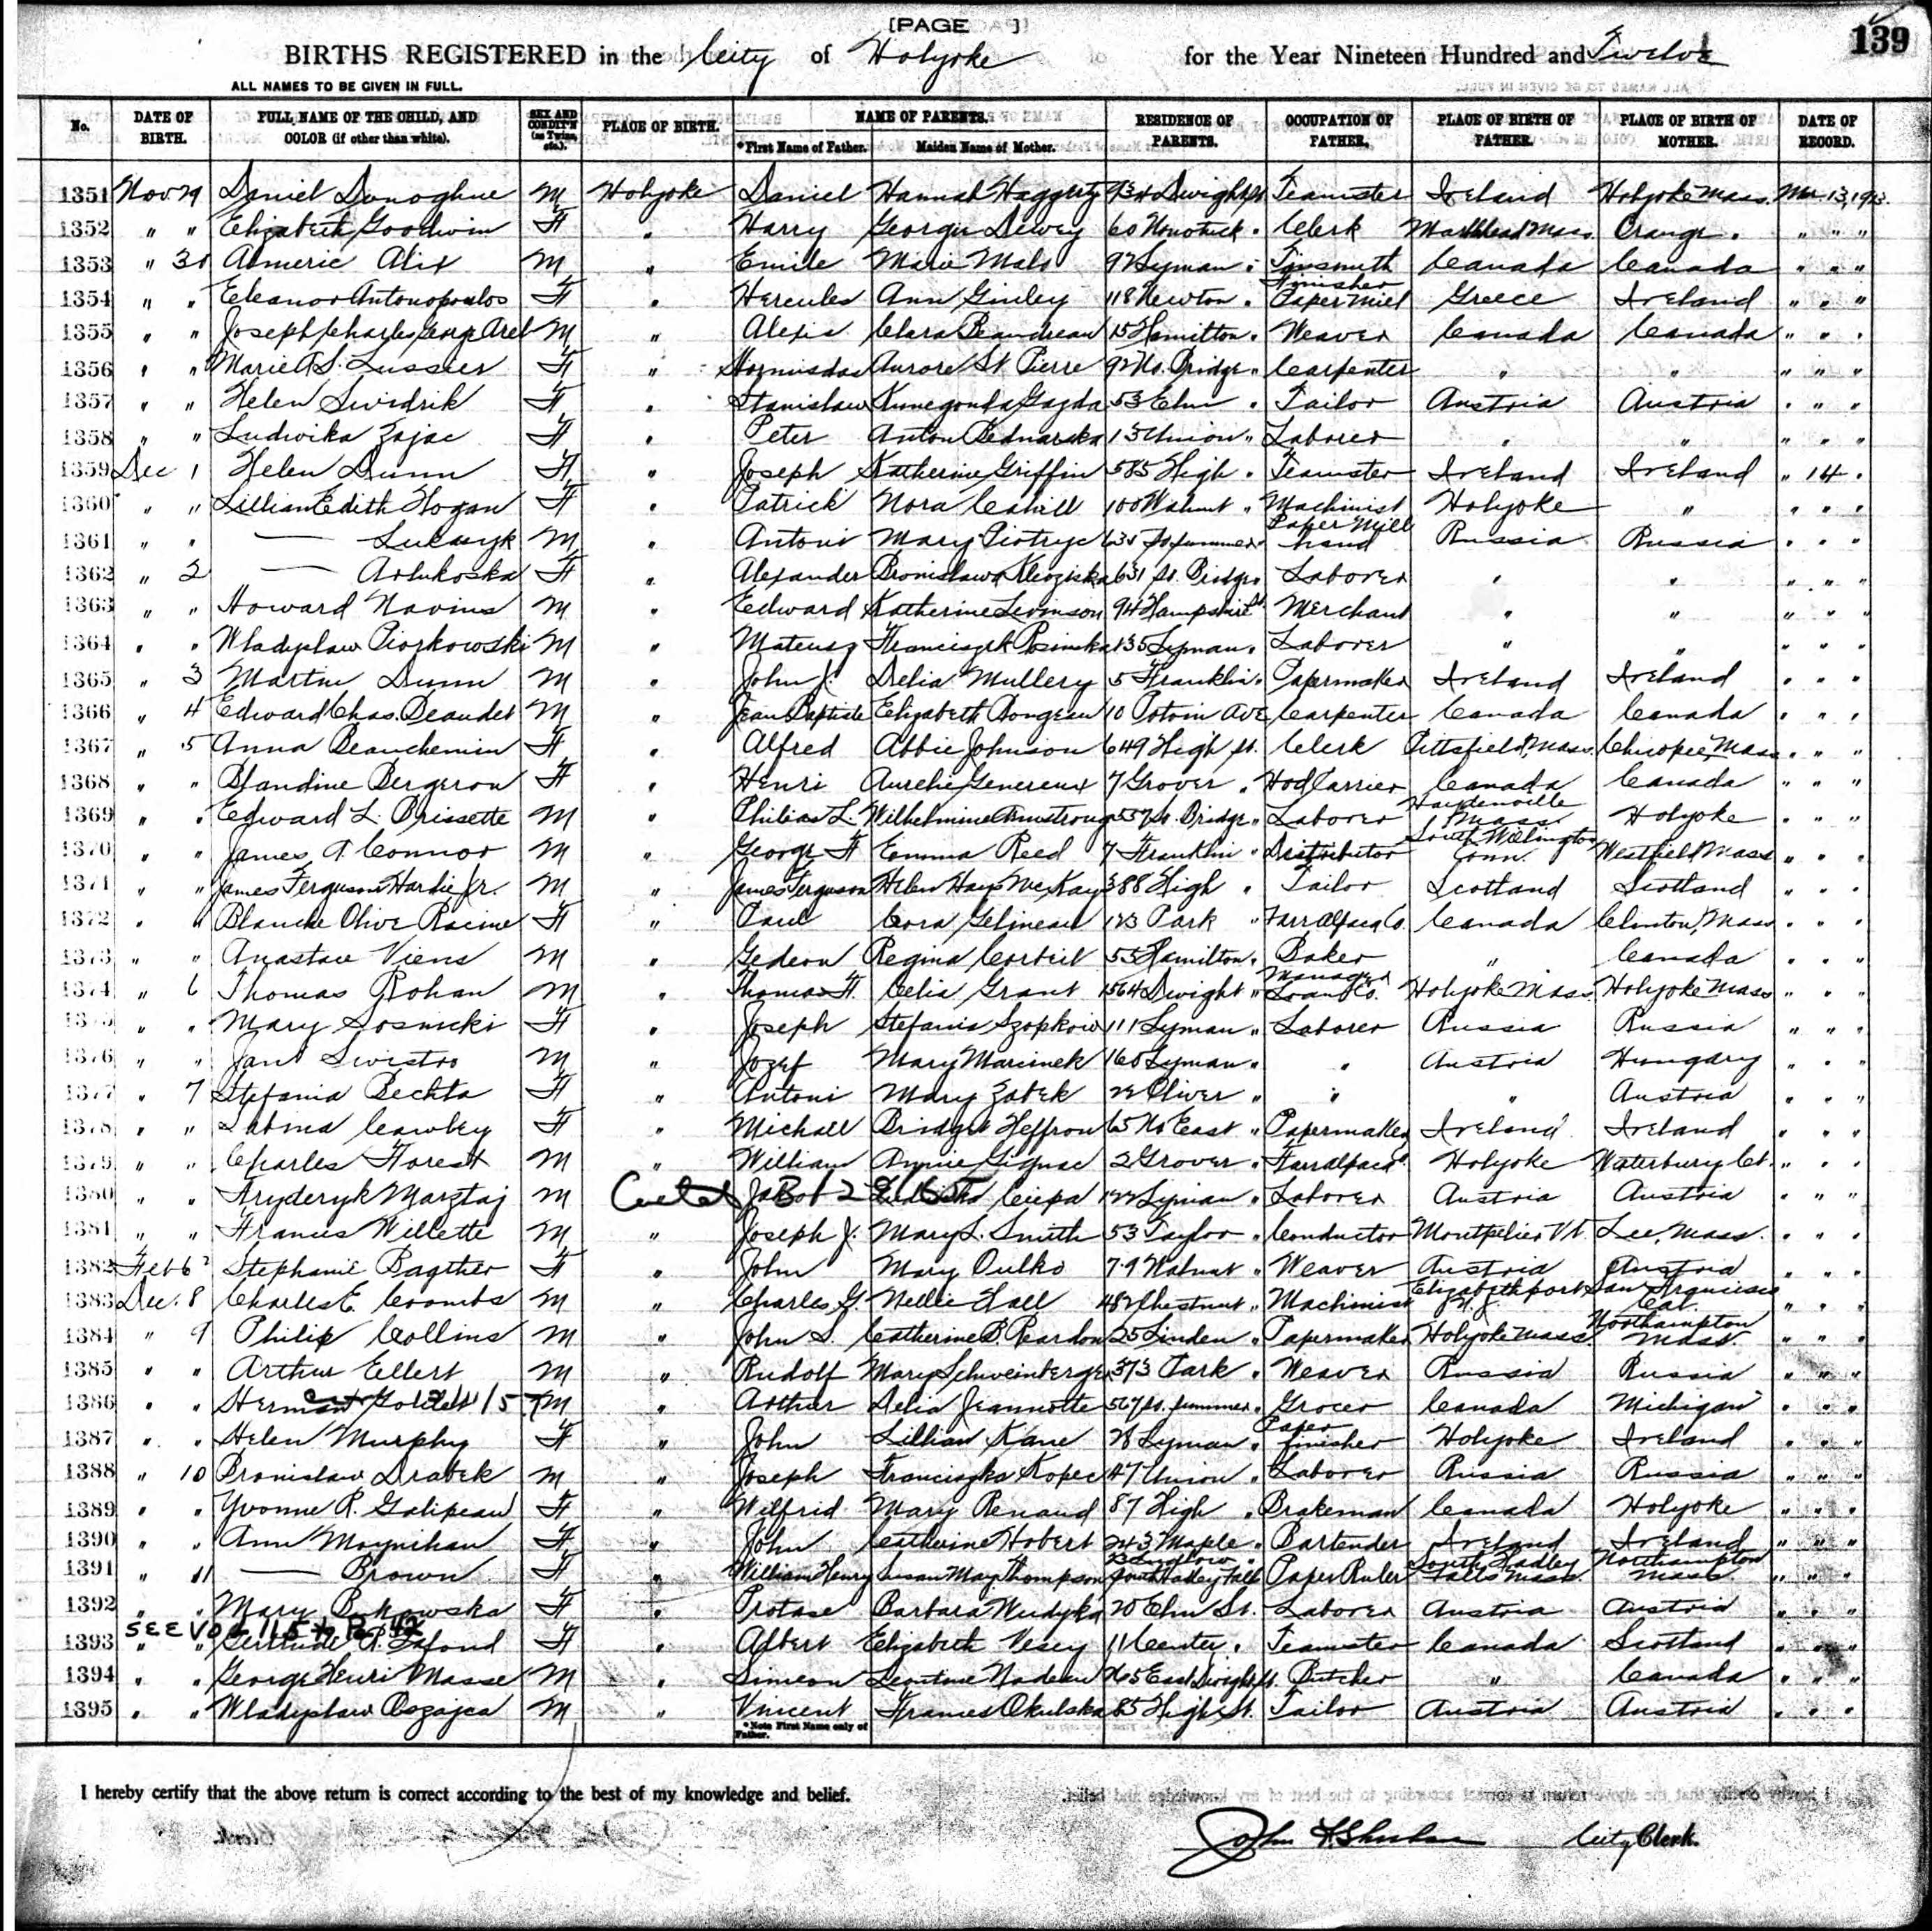 [PAGE ]
139
BIRTHS REGISTERED in the City of Holyoke for the Year Nineteen Hundred and Twelve
ALL NAMES TO BE GIVEN IN FULL.
No. DATE OF BIRTH. FULL NAME OF THE CHILD, AND COLOR (if other than white). SEX AND CONDIT'N (as Twins, etc.). PLACE OF BIRTH. NAME OF PARENTS. *First Name of Father. Maiden Name of Mother. RESIDENCE OF PARENTS. OCCUPATION OF FATHER. PLACE OF BIRTH OF FATHER. PLACE OF BIRTH OF MOTHER. DATE OF RECORD.
1351 Nov. 29 Daniel Donoghue M Holyoke Daniel Hannah Haggerty 934 Dwight St. Teamster Ireland Holyoke Mass. Mar. 13, 1913.
1352 " " Elizabeth Goodwin F " Harry Georgie Dewey 60 " Clerk Marblehead Mass. Orange " " " "
1353 " 30 Aimeric Alix M " Emile Marie Malo 92 Lyman " Tinsmith Canada Canada " " "
1354 " " Eleanor Antonopoulos F " Hercules Ann Ginley 118 Newton " Finisher Paper Mill Greece Ireland " " "
1355 " " Joseph Charles George Arel M " Alexis Clara Beaudreau 15 Hamilton " Weaver Canada Canada " " "
1356 " " Marie A. S. Lussier F " Hormisdas Aurore St Pierre 92 No. Bridge " Carpenter " " " " "
1357 " " Helen Swidrik F " Stanislaw Kunegonda Gazda 53 Elm " Tailor Austria Austria " " "
1358 " " Ludwika Zajac F " Peter Anton Bednarska 13 Union " Laborer " " " " "
1359 Dec 1 Helen Dunn F " Joseph Katherine Griffin 585 High " Teamster Ireland Ireland " 14 "
1360 " " Lillian Edith Hogan F " Patrick Nora Cahill 100 Walnut " Machinist Holyoke " " " "
1361 " " — Lukasyk M " Antoni Mary Piotryc 630 So. Summer " Paper Mill hand Russia Russia " " "
1362 " 2 — F " Alexander Bronislawa 631 So. Bridge " Laborer " " " " "
1363 " " Howard Navins M " Edward Katherine Levinson 94 Hampshire St Merchant " " " " "
1364 " " Wladyslaw Piorkowski M " Mateusz 135 Lyman " Laborer " " " " "
1365 " 3 Martin Dunn M " John J. Delia Mullery 5 Franklin " Papermaker Ireland Ireland " " "
1366 " 4 Edward Chas. Beaudet M " Jean Baptiste Elizabeth Bongeau 10 Potvin Ave Carpenter Canada Canada " " "
1367 " 5 Anna Beauchemin F " Alfred Abbie Johnson 649 High St. Clerk Pittsfield, Mass. Chicopee, Mass. " " "
1368 " " Blandine Bergeron F " Henri Aurelie Genereux 7 Grover " Hod Carrier Canada Canada " " "
1369 " " Edward L. Brissette M " Philias L. Wilhelmine Armstrong 557 So. Bridge " Laborer Haydenville Mass. Holyoke " " "
1370 " " James A. Connor M " George F Emma Reed 7 Franklin " Distributor South Wilington Conn. Westfield Mass " " "
1371 " " James Ferguson Hardie Jr. M " James Ferguson Helen Hays McKay 388 High " Tailor Scotland Scotland " " "
1372 " " Blanche Olive Racine F " Paul Cora Gelineau 123 Park " Farr Alpaca Co. Canada Clinton, Mass " " "
1373 " " Anastase Viens M " Gedeon Regina Corbeil 55 Hamilton " Baker " Canada " " "
1374 " 6 Thomas Rohan M " Thomas F. Celia Grant 1564 Dwight " Manager Loan Co. Holyoke Mass. Holyoke Mass " " "
1375 " " Mary Sosnicki F " Joseph Stefania Szopkow 111 Lyman " Laborer Russia Russia " " "
1376 " " Jan Swistro M " Jozef Mary Marcinek 160 Lyman " " Austria Hungary " " "
1377 " 7 Stefania Bechta F " Antoni Mary Zabek 22 Oliver " " " Austria " " "
1378 " " Sabina Cawley F " Michael Bridget Heffron 65 No East " Papermaker Ireland Ireland " " "
1379 " " Charles Forest M " William Annie Gignac 2 Grover " Farr Alpaca Holyoke Waterbury Ct. " " "
1380 " " Fryderyk Marztaj M Jakob Ciepa 122 Lyman " Laborer Austria Austria " " "
1381 " " Francis Willette M " Joseph J. Mary L. Smith 53 Taylor " Conductor Montpelier Vt Lee, Mass. " " "
1382 Feb 6 Stephanie Bagther F " John Mary Dulko 79 Walnut " Weaver Austria Austria " " "
1383 Dec. 8 Charles E. Coombs M " Charles G. Nellie Hall 482 Chestnut " Machinist Elizabethport N.J. San Francisco Cal. " " "
1384 " 9 Philip Collins M " John S. Catherine B. Reardon 25 Linden " Papermaker Holyoke Mass. Northampton Mass. " " "
1385 " " Arthur Ellert M " Rudolf Mary Schweinberger 373 Park " Weaver Russia Russia " " "
1386 " " Herman M " Arthur Delia Jeannotte 567 So. Summer " Grocer Canada Michigan " " "
1387 " " Helen Murphy F " John Lillian Kane 28 Lyman " Paper finisher Holyoke Ireland " " "
1388 " 10 Bronislaw Drabek M " Joseph Franciszka Kopec 47 Union " Laborer Russia Russia " " "
1389 " " Yvonne R. Galipeau F " Wilfrid Mary Renaud 87 High " Brakeman Canada Holyoke " " "
1390 " " Ann Moynihan F " John Catherine Hobert 243 Maple " Bartender Ireland Ireland " " "
1391 " 11 — Brown F " William Henry Susan May Thompson South Hadley Falls Paper Ruler South Hadley Falls Mass. Northampton Mass. " " "
1392 " " Mary Bukowska F " Protase Barbara Wudyka 20 Elm St. Laborer Austria Austria " " "
SEE VOL 115
1393 " " Gertrude A. Lafond F " Albert Elizabeth Vesey 11 Center " Teamster Canada Scotland " " "
1394 " " George Henri Masse M " Simeon Leontine Nadeau 265 East Dwight St. Butcher " Canada " " "
1395 " " Wladyslaw M " Vincent Frances Okulska 85 High St. Tailor Austria Austria " " "
*Note First Name only of Father.
I hereby certify that the above return is correct according to the best of my knowledge and belief.
John F. Sheehan City Clerk.